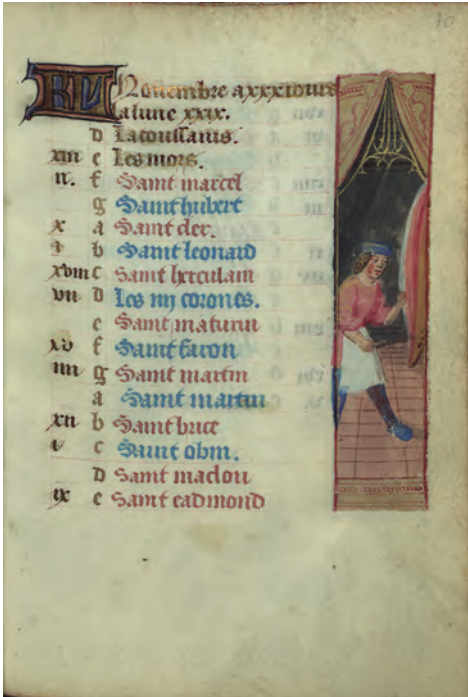 KL Nouembre a xxx iours
la lune xxix.
D La toussains.
xiii e Les mors.
ii. f Saint marcel
g Saint hubert
x a Saint cler.
b Saint leonard
xviii c Saint herculam
vii D Les iiij corones.
e Saint maturin
xv f Saint faron
iiii g Saint martin
a Saint martin
xii b Saint brice
i c Saint obm.
D Saint maclou
ix e Saint eadmond